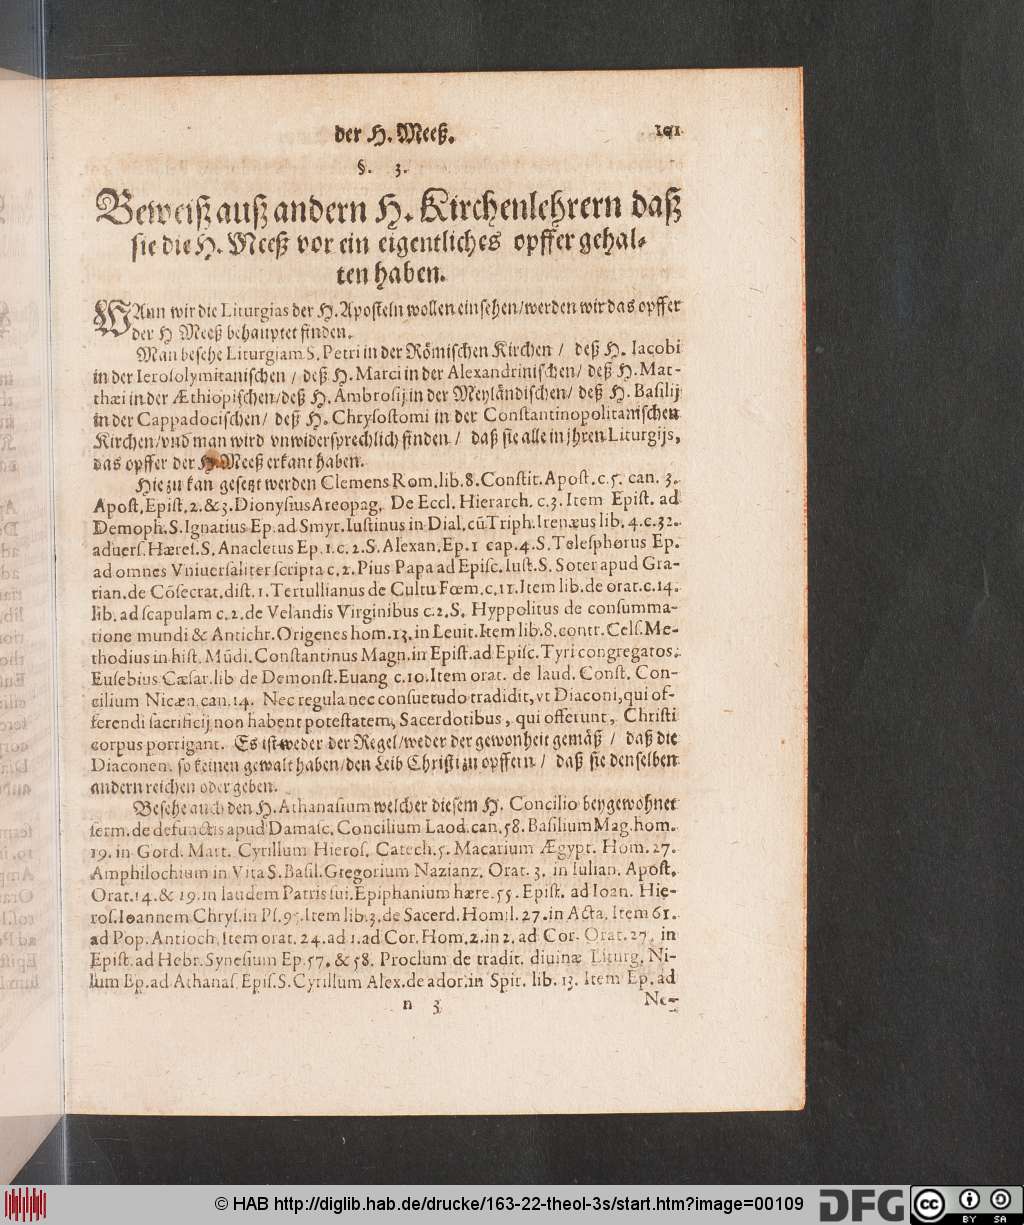 der H. Meeß. 101
§. 3.
Beweiß auß andern H. Kirchenlehrern daß
sie die H. Meeß vor ein eigentliches opffer gehal-
ten haben.
WAnn wir die Liturgias der H. Aposteln wollen einsehen/werden wir das opffer
der H Meeß behauptet finden.
Man besehe Liturgiam S. Petri in der Römischen Kirchen / deß H. Iacobi
in der Ierosolymitanischen / deß H. Marci in der Alexandrinischen/ deß H. Mat-
thæi in der Æthiopischen/deß H. Ambrosij in der Meyländischen/ deß H. Basilij
in der Cappadocischen/ deß H. Chrysostomi in der Constantinopolitanischen
Kirchen/vnd man wird vnwidersprechlich finden / daß sie alle in jhren Liturgijs,
das opffer der H. Meeß erkant haben.
Hiezu kan gesetzt werden Clemens Rom. lib. 8. Constit. Apost. c. 5. can. 3.
Apost. Epist. 2. & 3. Dionysius Areopag. De Eccl. Hierarch. c. 3. Item Epist. ad
Demoph. S. Ignatius Ep. ad Smyr. Iustinus in Dial. cū Triph. Irenæus lib. 4. c. 32.
aduers. Hæres. S. Anacletus Ep. 1. c. 2. S. Alexan. Ep. 1 cap. 4. S. Telesphorus Ep.
ad omnes Vniuersaliter scripta c. 2. Pius Papa ad Episc. Iust. S. Soter apud Gra-
tian. de Cōsecrat. dist. 1. Tertullianus de Cultu Fœm. c. 11. Item lib. de orat. c. 14.
lib. ad scapulam c. 2. de Velandis Virginibus c. 2. S. Hyppolitus de consumma-
tione mundi & Antichr. Origenes hom. 13. in Leuit. Item lib. 8. contr. Cels. Me-
thodius in hist. Mūdi. Constantinus Magn. in Epist. ad Episc. Tyri congregatos.
Eusebius Cæsar. lib de Demonst. Euang c. 10. Item orat. de laud. Const. Con-
cilium Nicæn. can. 14. Nec regula nec consuetudo tradidit, vt Diaconi, qui of-
ferendi sacrificij non habent potestatem, Sacerdotibus, qui offerunt, Christi
corpus porrigant. Es ist weder der Regel/weder der gewonheit gemäß / daß die
Diaconen. so keinen gewalt haben/den Leib Christi zu opffern / daß sie denselben
andern reichen oder geben.
Besehe auch den H. Athanasium welcher diesem H. Concilio beygewohnet
serm. de defunctis apud Damasc. Concilium Laod. can. 58. Basilium Mag. hom.
19. in Gord. Mart. Cyrillum Hieros. Catech. 5. Macarium Ægypt. Hom. 27.
Amphilochium in Vita S. Basil. Gregorium Nazianz. Orat. 3. in Iulian. Apost.
Orat. 14. & 19. in laudem Patris sui. Epiphanium hære. 55. Epist. ad Ioan. Hie-
ros. Ioannem Chrys. in Ps. 95. Item lib. 3. de Sacerd. Homil. 27. in Acta, Item 61.
ad Pop. Antioch. Item orat. 24. ad 1. ad Cor. Hom. 2. in 2. ad Cor. Orat. 27. in
Epist. ad Hebr. Synesium Ep. 57. & 58. Proclum de tradit. diuinæ Liturg. Ni-
lum Ep. ad Athanas. Epis. S. Cyrillum Alex. de ador. in Spir. lib. 13. Item Ep. ad
n 3 Ne-
© HAB http://diglib.hab.de/drucke/163-22-theol-3s/start.htm?image=00109 DFG cc BY SA